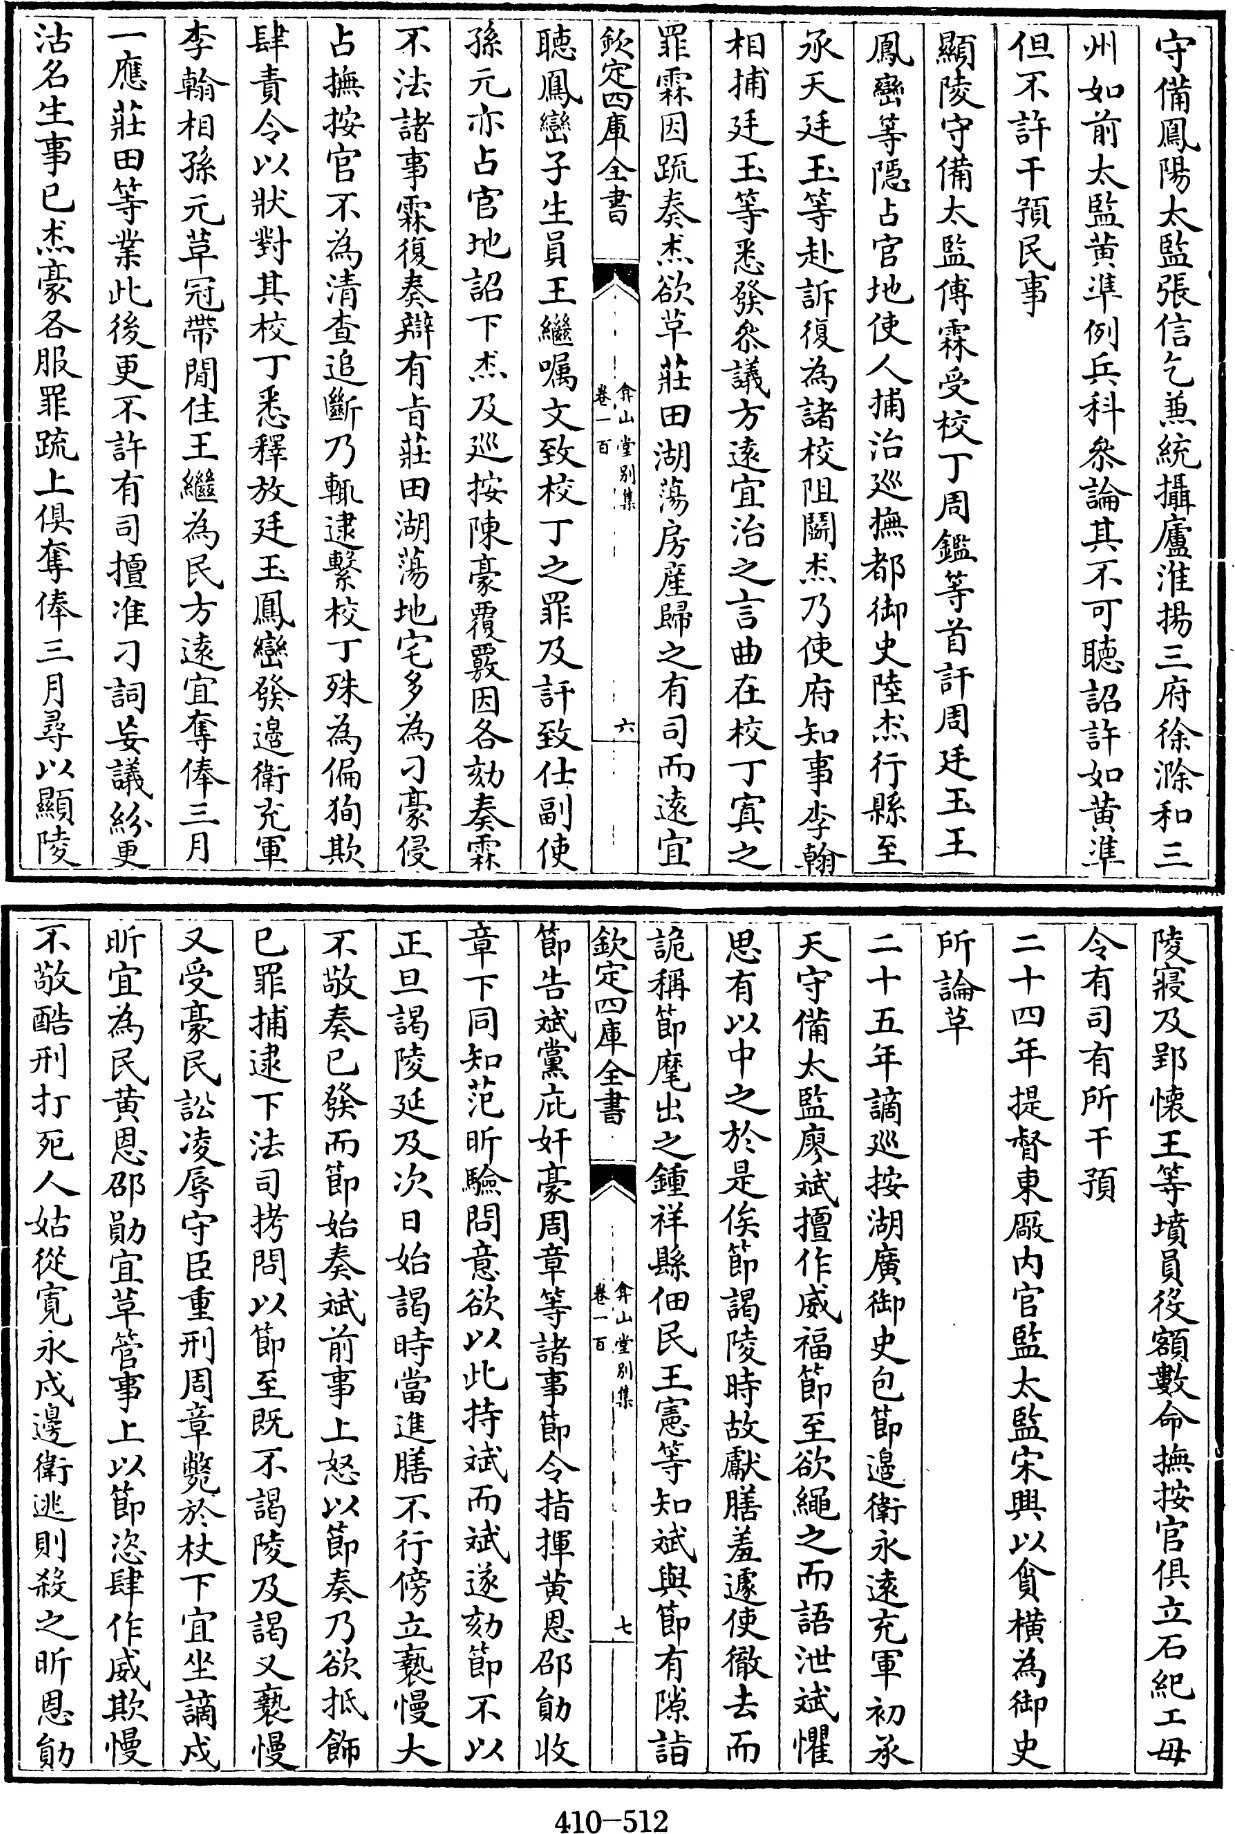 守備鳳陽太監張信乞兼統攝廬淮揚三府徐滁和三
州如前太監黄準例兵科叅論其不可聴詔許如黄準
但不許干預民事
顯陵守備太監傅霖受校丁周鑑等首訐周廷玉王
鳳巒等隱占官地使人捕治巡撫都御史陸杰行縣至
承天廷玉等赴訴復為諸校阻鬭杰乃使府知事李翰
相捕廷玉等悉發叅議方遠宜治之言曲在校丁寘之
罪霖因疏奏杰欲草莊田湖蕩房産歸之有司而遠宜
欽定四庫全書
弇山堂别集
卷一百
六
聴鳳巒子生員王繼嘱文致校丁之罪及訐致仕副使
孫元亦占官地詔下杰及巡按陳豪覆覈因各劾奏霖
不法諸事霖復奏辯有㫖莊田湖蕩地宅多為刁豪侵
占撫按官不為清查追斷乃輒逮繫校丁殊為偏狥欺
肆責令以狀對其校丁悉釋放廷玉鳳巒發邉衛充軍
李翰相孫元草冠帶閒住王繼為民方遠宜奪俸三月
一應莊田等業此後更不許有司擅准刁詞妄議紛更
沽名生事已杰豪各服罪疏上俱奪俸三月尋以顯陵
陵寢及郢懷王等墳員役額數命撫按官俱立石紀工毋
令有司有所干預
二十四年提督東廠内官監太監宋興以貪横為御史
所論草
二十五年謫巡按湖廣御史包節邉衛永遠充軍初承
天守備太監廖斌擅作威福節至欲繩之而語泄斌懼
思有以中之於是俟節謁陵時故獻膳羞遽使徹去而
詭稱節麾出之鍾祥縣佃民王憲等知斌與節有隙詣
欽定四庫全書
弇山堂别集
卷一百
七
節告斌黨庇奸豪周章等諸事節令指揮黄恩邵勛收
章下同知范昕驗問意欲以此持斌而斌遂劾節不以
正旦謁陵延及次日始謁時當進膳不行傍立褻慢大
不敬奏已發而節始奏斌前事上怒以節奏乃欲抵飾
已罪捕逮下法司拷問以節至既不謁陵及謁又褻慢
又受豪民訟凌辱守臣重刑周章斃於杖下宜坐謫戍
昕宜為民黄恩邵勛宜草管事上以節恣肆作威欺慢
不敬酷刑打死人姑從寛永戍邊衛逃則殺之昕恩勛
410-512